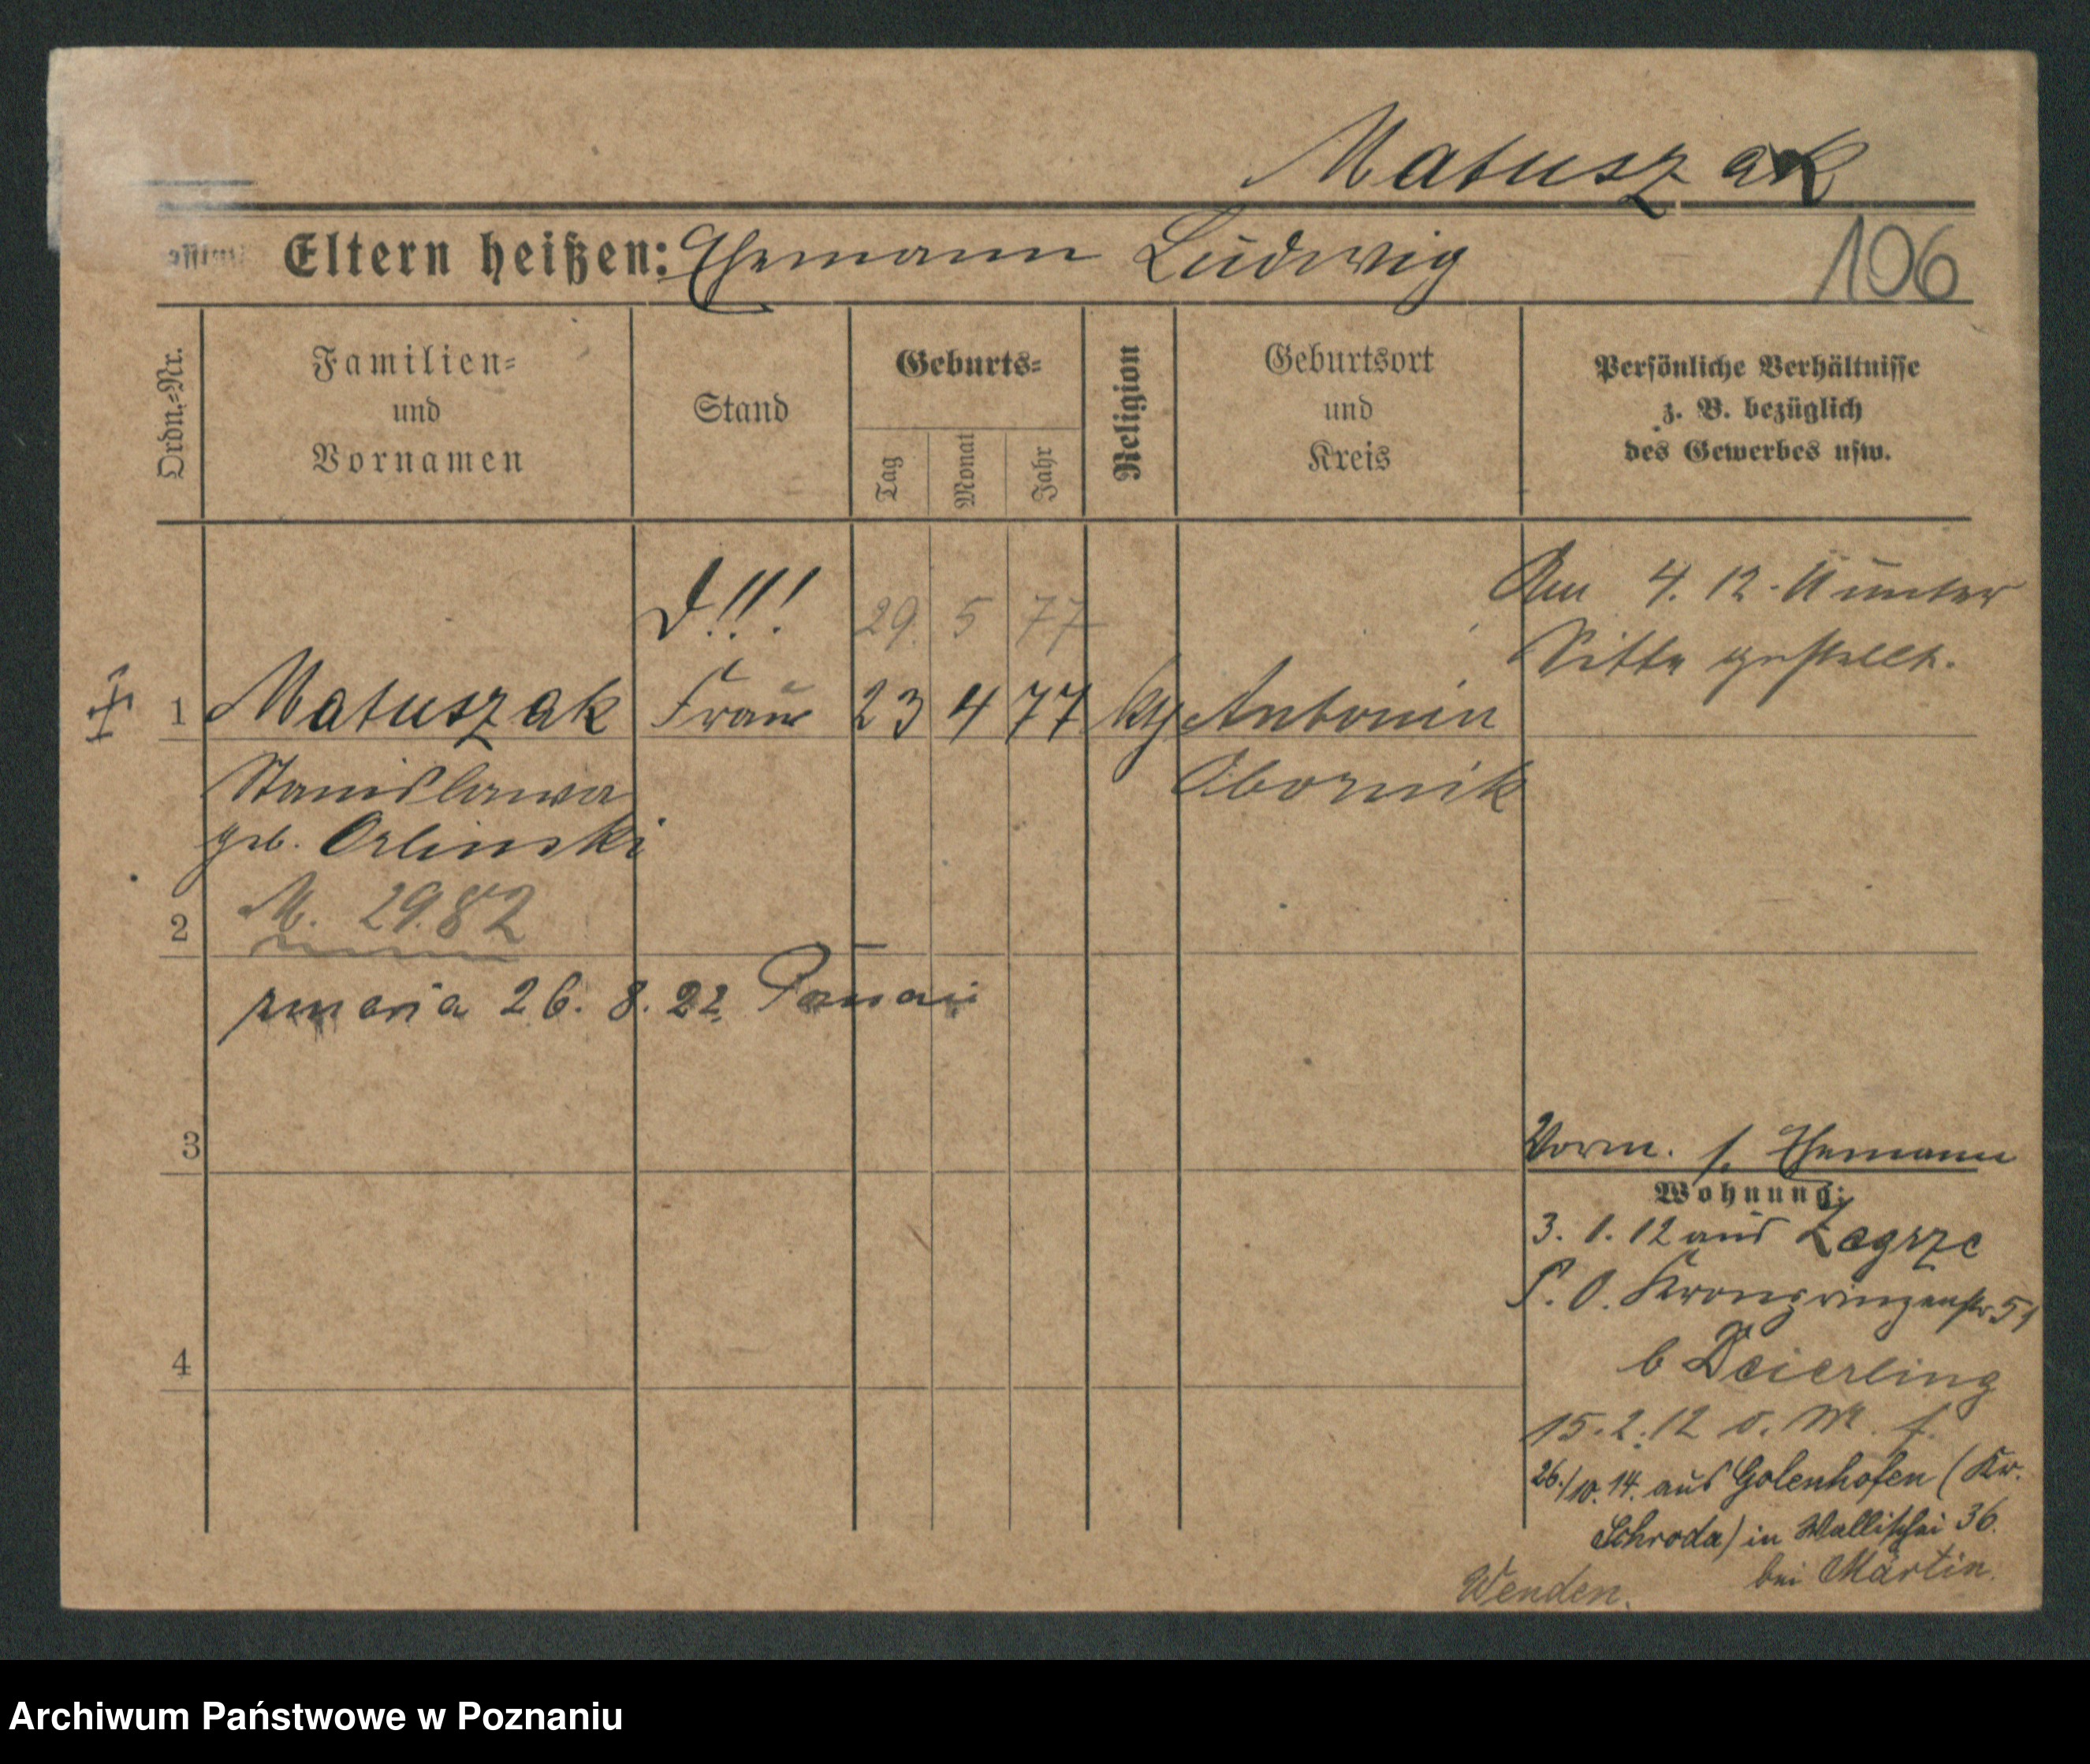 Matuszak
Eltern heißen: Ehemann Ludwig
106
Ordn.-Nr.
Familien-
und
Vornamen
Stand
Geburts-
Tag
Monat
Jahr
Religion
Geburtsort
und
Kreis
Persönliche Verhältnisse
z. B. bezüglich
des Gewerbes usw.
!!! 29. 5 77
Am 4. 12. 11 unter
Sitte gestellt.
1 Matuszak Frau 23 4 77 Antonin
Stanislawa Obornik
geb. Orlinski
2 M. 29.82
zmarła 26. 8. 22 Poznań
3
Vorm. s. Ehemann
Wohnung:
3. 1. 12 aus Zagrze
P. O. Kronprinzenstr. 51
4
b Deierling
15. 2. 12
26./10. 14. aus Golenhofen (Kr.
Schroda) in Wallischei 36.
bei Martin.
Wenden.
Archiwum Państwowe w Poznaniu